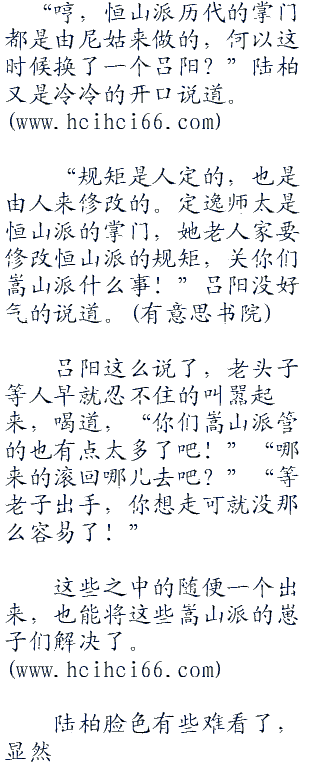 “哼，恒山派历代的掌门
都是由尼姑来做的，何以这
时候换了一个吕阳？”陆柏
又是冷冷的开口说道。
(www.hcihci66.com)
“规矩是人定的，也是
由人来修改的。定逸师太是
恒山派的掌门，她老人家要
修改恒山派的规矩，关你们
嵩山派什么事！”吕阳没好
气的说道。(有意思书院)
吕阳这么说了，老头子
等人早就忍不住的叫嚣起
来，喝道，“你们嵩山派管
的也有点太多了吧！”“哪
来的滚回哪儿去吧？”“等
老子出手，你想走可就没那
么容易了！”
这些之中的随便一个出
来，也能将这些嵩山派的崽
子们解决了。
(www.hcihci66.com)
陆柏脸色有些难看了，
显然